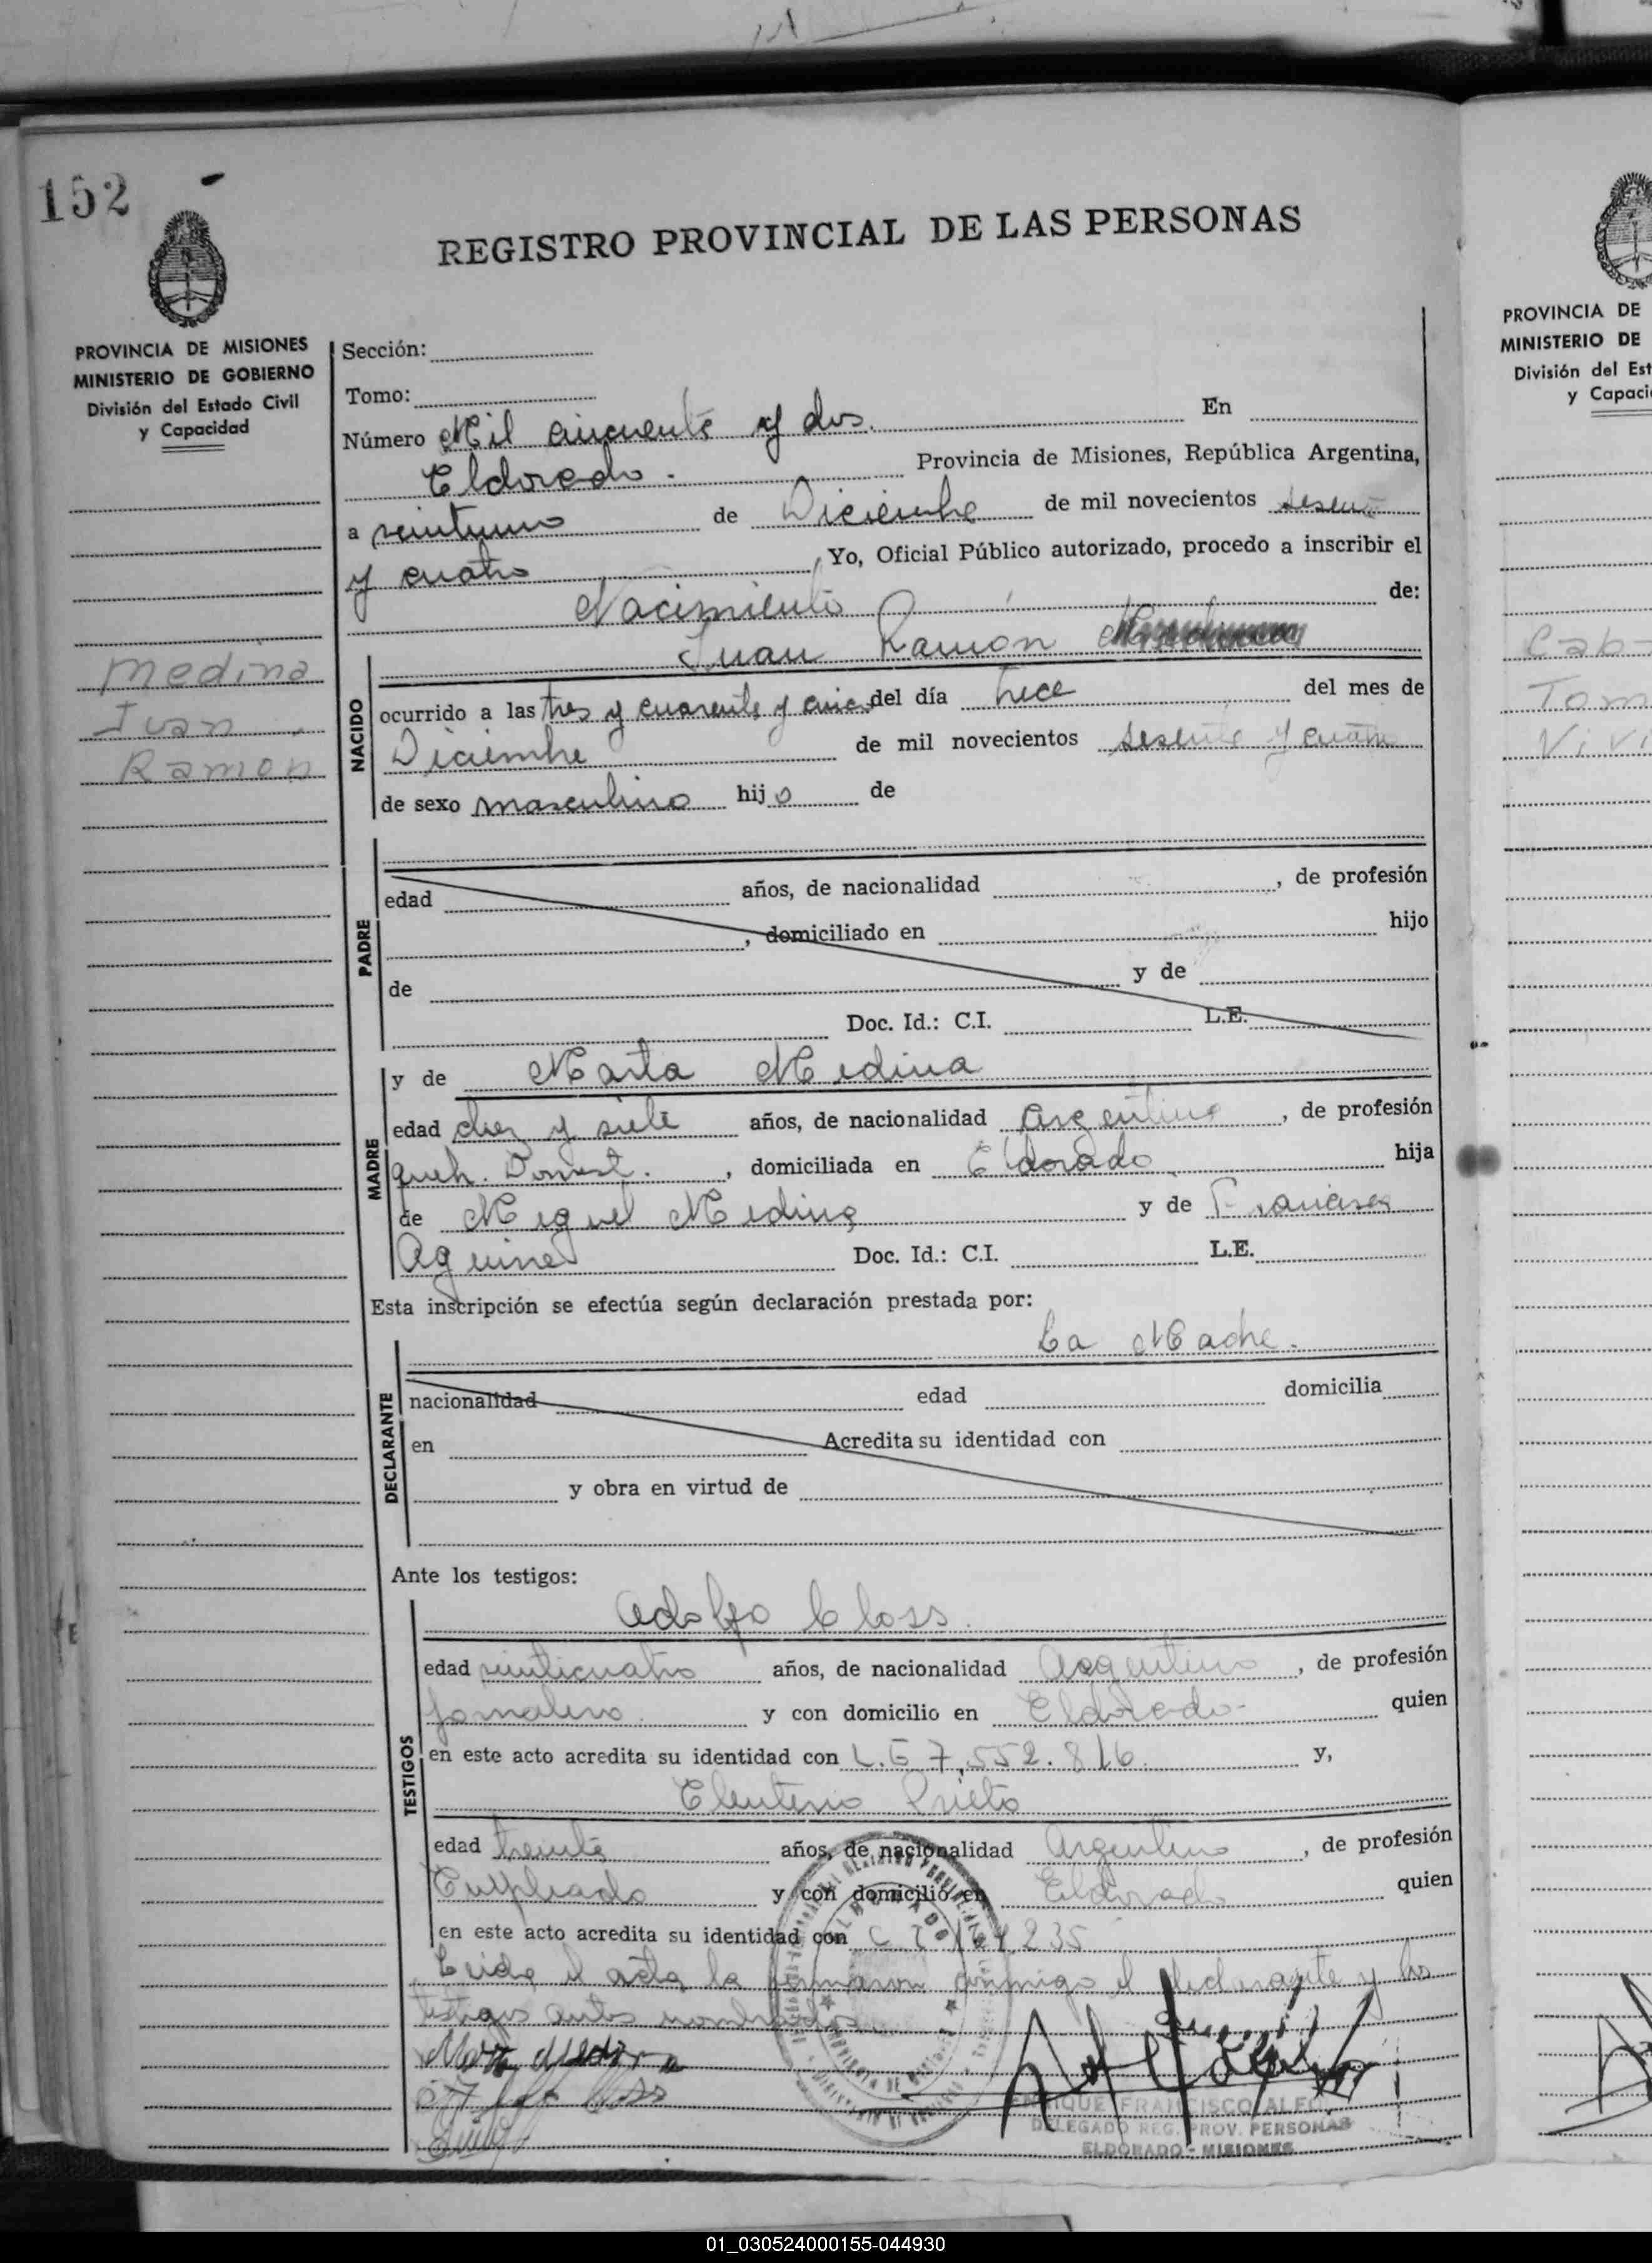 152
REGISTRO PROVINCIAL DE LAS PERSONAS
PROVINCIA DE MISIONES
MINISTERIO DE GOBIERNO
División del Estado Civil
y Capacidad
Medina
Juan
Ramón
Sección:
Tomo:
Número Mil cincuenta y dos. En
Eldorado. Provincia de Misiones, República Argentina,
a veintiuno de Diciembre de mil novecientos sesenta
y cuatro, Yo, Oficial Público autorizado, procedo a inscribir el
Nacimiento de:
Juan Ramón
NACIDO
ocurrido a las tres y cuarenta y cinco del día trece del mes de
Diciembre de mil novecientos sesenta y cuatro
de sexo masculino hijo de
PADRE
edad años, de nacionalidad , de profesión
, domiciliado en hijo
de y de
Doc. Id.: C.I. L.E.
MADRE
y de Marta Medina
edad diez y siete años, de nacionalidad Argentina, de profesión
queh. Domest., domiciliada en Eldorado hija
de Miguel Medina y de Francisca
Aguirre Doc. Id.: C.I. L.E.
Esta inscripción se efectúa según declaración prestada por:
La Madre.
DECLARANTE
nacionalidad edad domicilia
en Acredita su identidad con
y obra en virtud de
Ante los testigos:
TESTIGOS
Adolfo Closs.
edad veinticuatro años, de nacionalidad Argentino, de profesión
jornalero y con domicilio en Eldorado- quien
en este acto acredita su identidad con L.E 7.552.816. y,
Eleuterio Prieto
edad treinta años, de nacionalidad Argentino, de profesión
Empleado y con domicilio en Eldorado quien
en este acto acredita su identidad con C I 164.235
Leida el acta la firmaron conmigo el declarante y los
testigos antes nombrados
Marta Medina
Closs
ENRIQUE FRANCISCO
DELEGADO REG. PROV. PERSONAS
ELDORADO - MISIONES
PROVINCIA DE
MINISTERIO DE
División del Est
y Capaci
Cab
Tom
Vivi
01_030524000155-044930